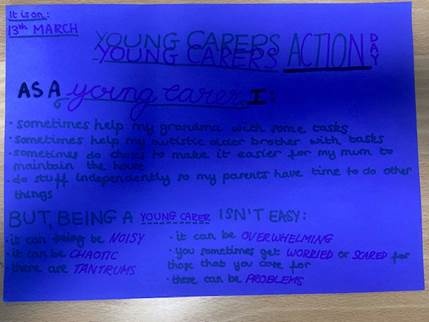 It is on:
13th MARCH
YOUNG CARERS ACTION DAY
AS A young carer I:
· sometimes help my grandma with some tasks
· sometimes help my autistic older brother with tasks
· sometimes do chores to make it easier for my mum to
maintain the house
· do stuff independently so my parents have time to do other
things
BUT, BEING A YOUNG CARER ISN'T EASY:
· it can being be NOISY
· it can be CHAOTIC
· there are TANTRUMS
· it can be OVERWHELMING
· you sometimes get WORRIED or SCARED for
those that you care for
· there can be PROBLEMS